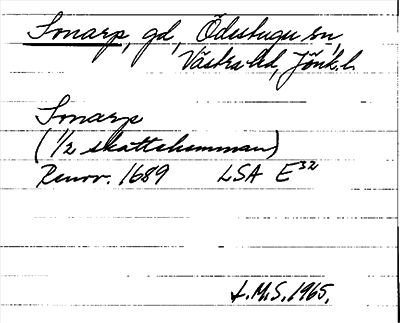 Sonarp, gd, Ödestugu sn,
Västra hd, Jönk.l.
Sonarp
(1/2 skattehemman)
Renov. 1689 LSA E32
L.M.S. 1965.